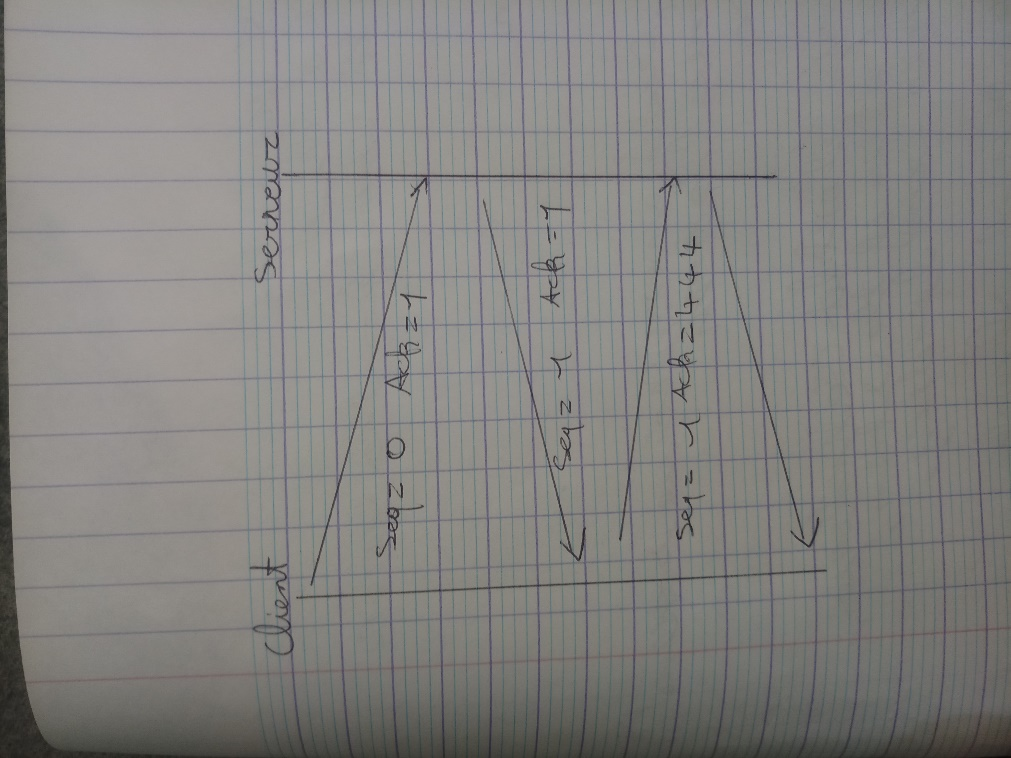 Client Serveur
Seq = 0 Ack = 1
Seq = 1 Ack = 1
Seq = 1 Ack = 444